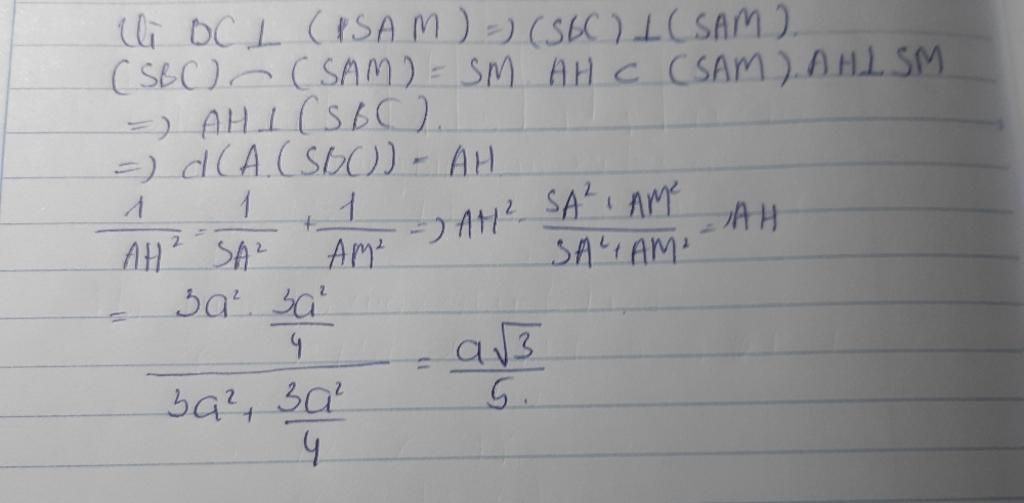 Vì BC ⊥ (SAM) => (SBC) ⊥ (SAM).
(SBC) ∩ (SAM) = SM AH ⊂ (SAM). AH ⊥ SM
=> AH ⊥ (SBC).
=> d(A.(SBC)) = AH
1/AH² = 1/SA² + 1/AM² => AH² = (SA² . AM²)/(SA² + AM²) => AH
= (3a² . 3a²/4)/(3a² + 3a²/4) = a√3/5.